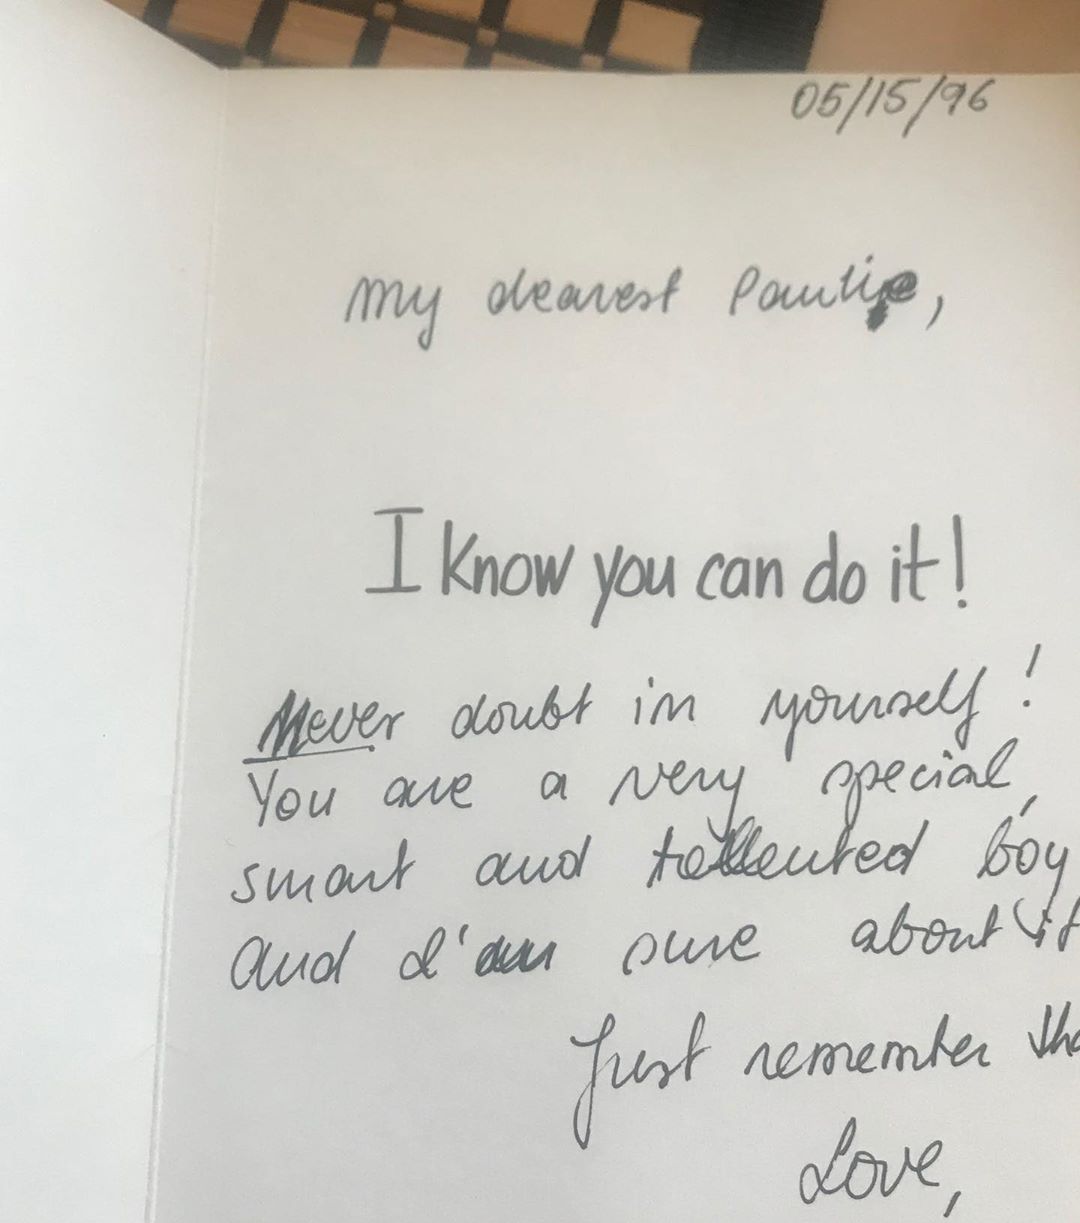 05/15/96
My dearest Paulie,
I Know you can do it!
Never doubt in yourself!
You are a very special,
smart and tellented boy
and I'am sure about it
Just remember tha
Love,